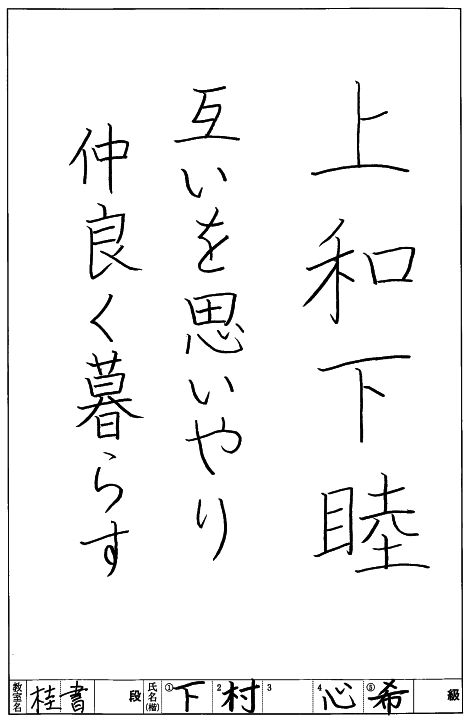 上和下睦
互いを思いやり
仲良く暮らす
教室名 桂書 段 氏名(楷) ① 下 2 村 3 4 心 ⑤ 希 級